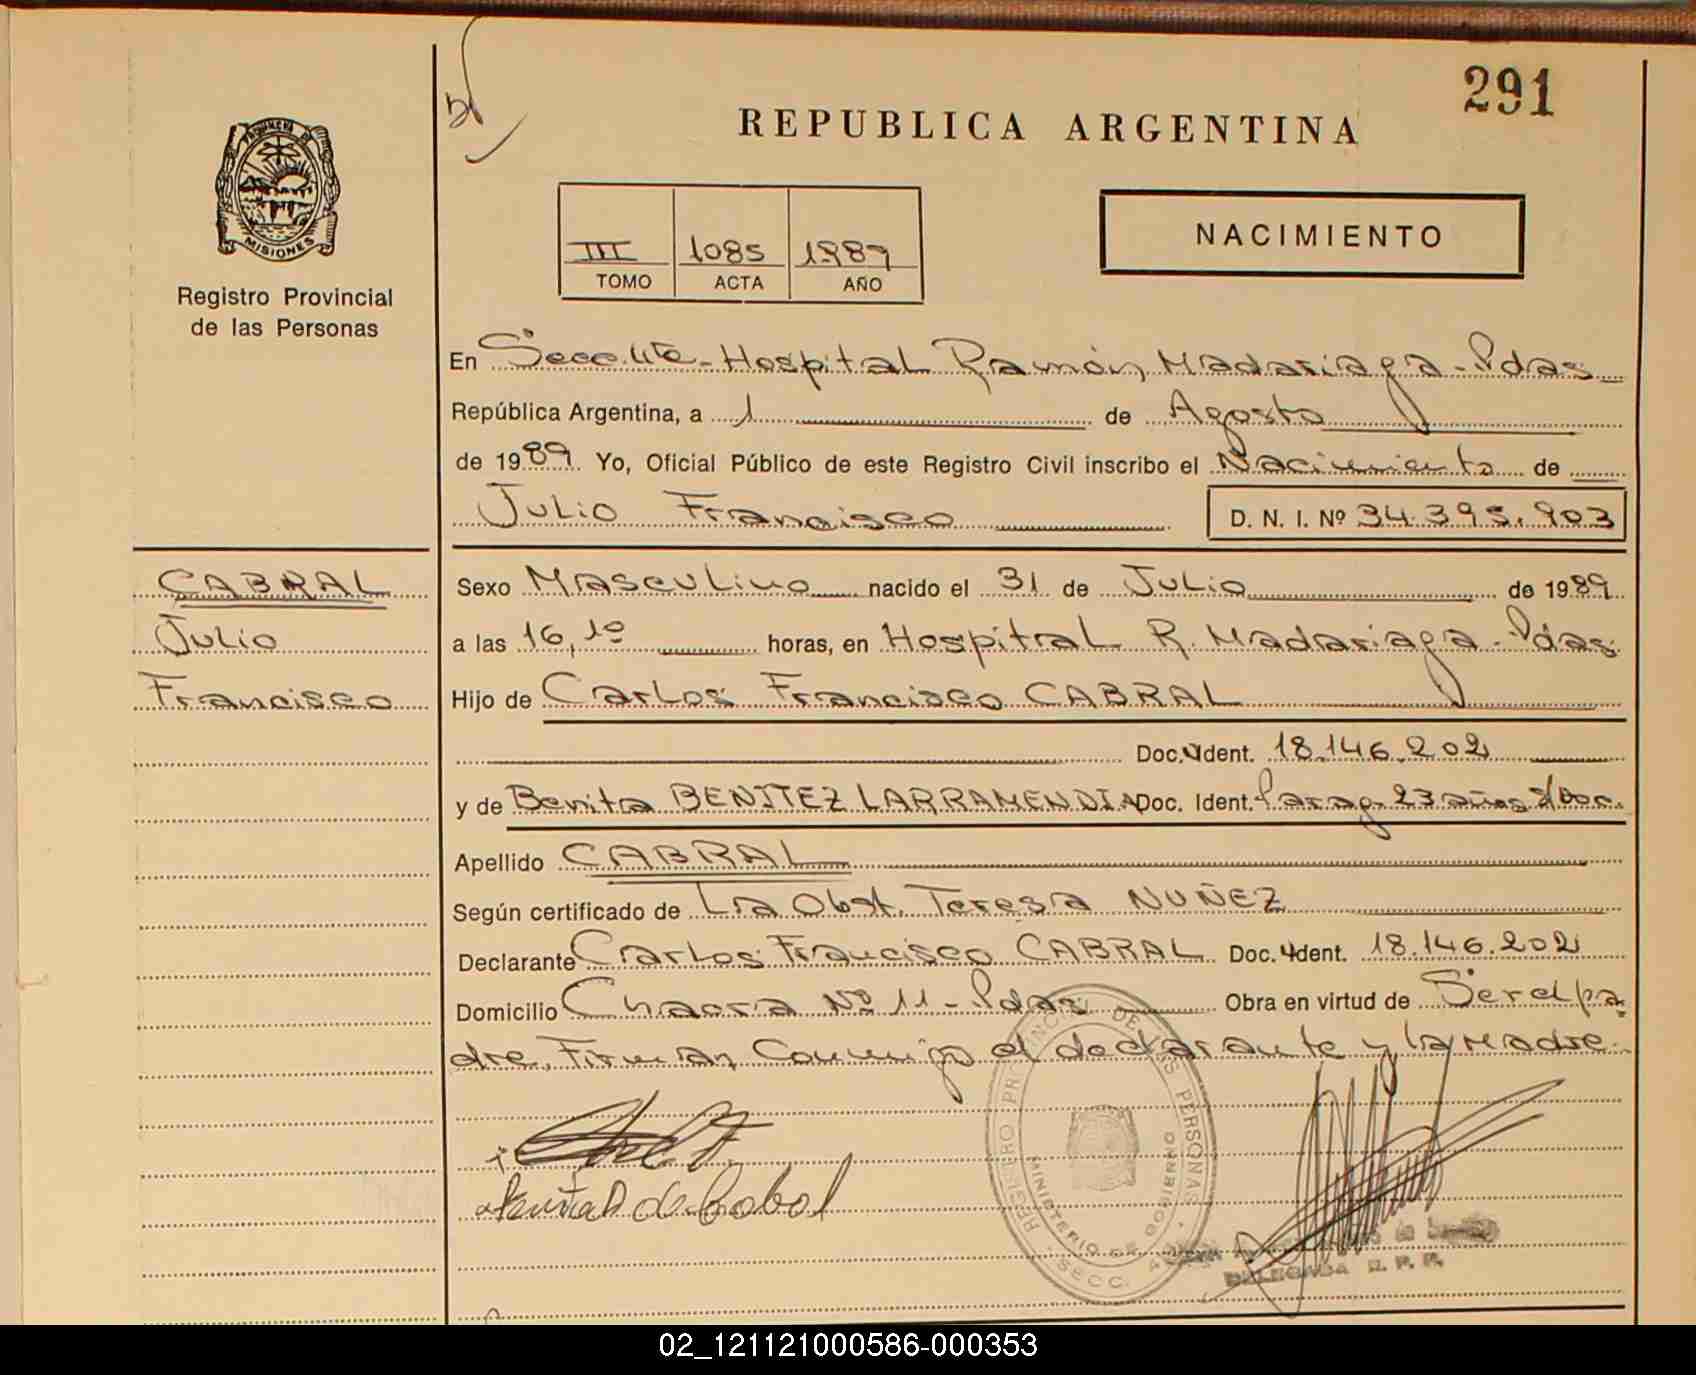 291
REPUBLICA ARGENTINA
PROVINCIA DE
MISIONES
Registro Provincial
de las Personas
III 1085 1989
TOMO ACTA AÑO
NACIMIENTO
En Secc. 4ta - Hospital Ramón Madariaga - Pdas
República Argentina, a 1 de Agosto
de 1989. Yo, Oficial Público de este Registro Civil inscribo el Nacimiento de
Julio Francisco D. N. I. Nº 34.395.903
CABRAL
Julio
Francisco
Sexo Masculino nacido el 31 de Julio de 1989
a las 16,10 horas, en Hospital R. Madariaga - Pdas
Hijo de Carlos Francisco CABRAL
Doc. Ident. 18.146.202
y de Benita BENITEZ LARRAMENDIA Doc. Ident. Parag. 23 años s/Doc.
Apellido CABRAL
Según certificado de La Obst. Teresa NUÑEZ
Declarante Carlos Francisco CABRAL Doc. Ident. 18.146.202
Domicilio Chacra Nº 11 - Pdas Obra en virtud de Ser el pa-
dre. Firman Conmigo el declarante y la Madre.
REGISTRO PROVINCIAL DE LAS PERSONAS
MINISTERIO DE GOBIERNO
SECC.
de Cabral
DELEGADA R. P. P.
02_121121000586-000353